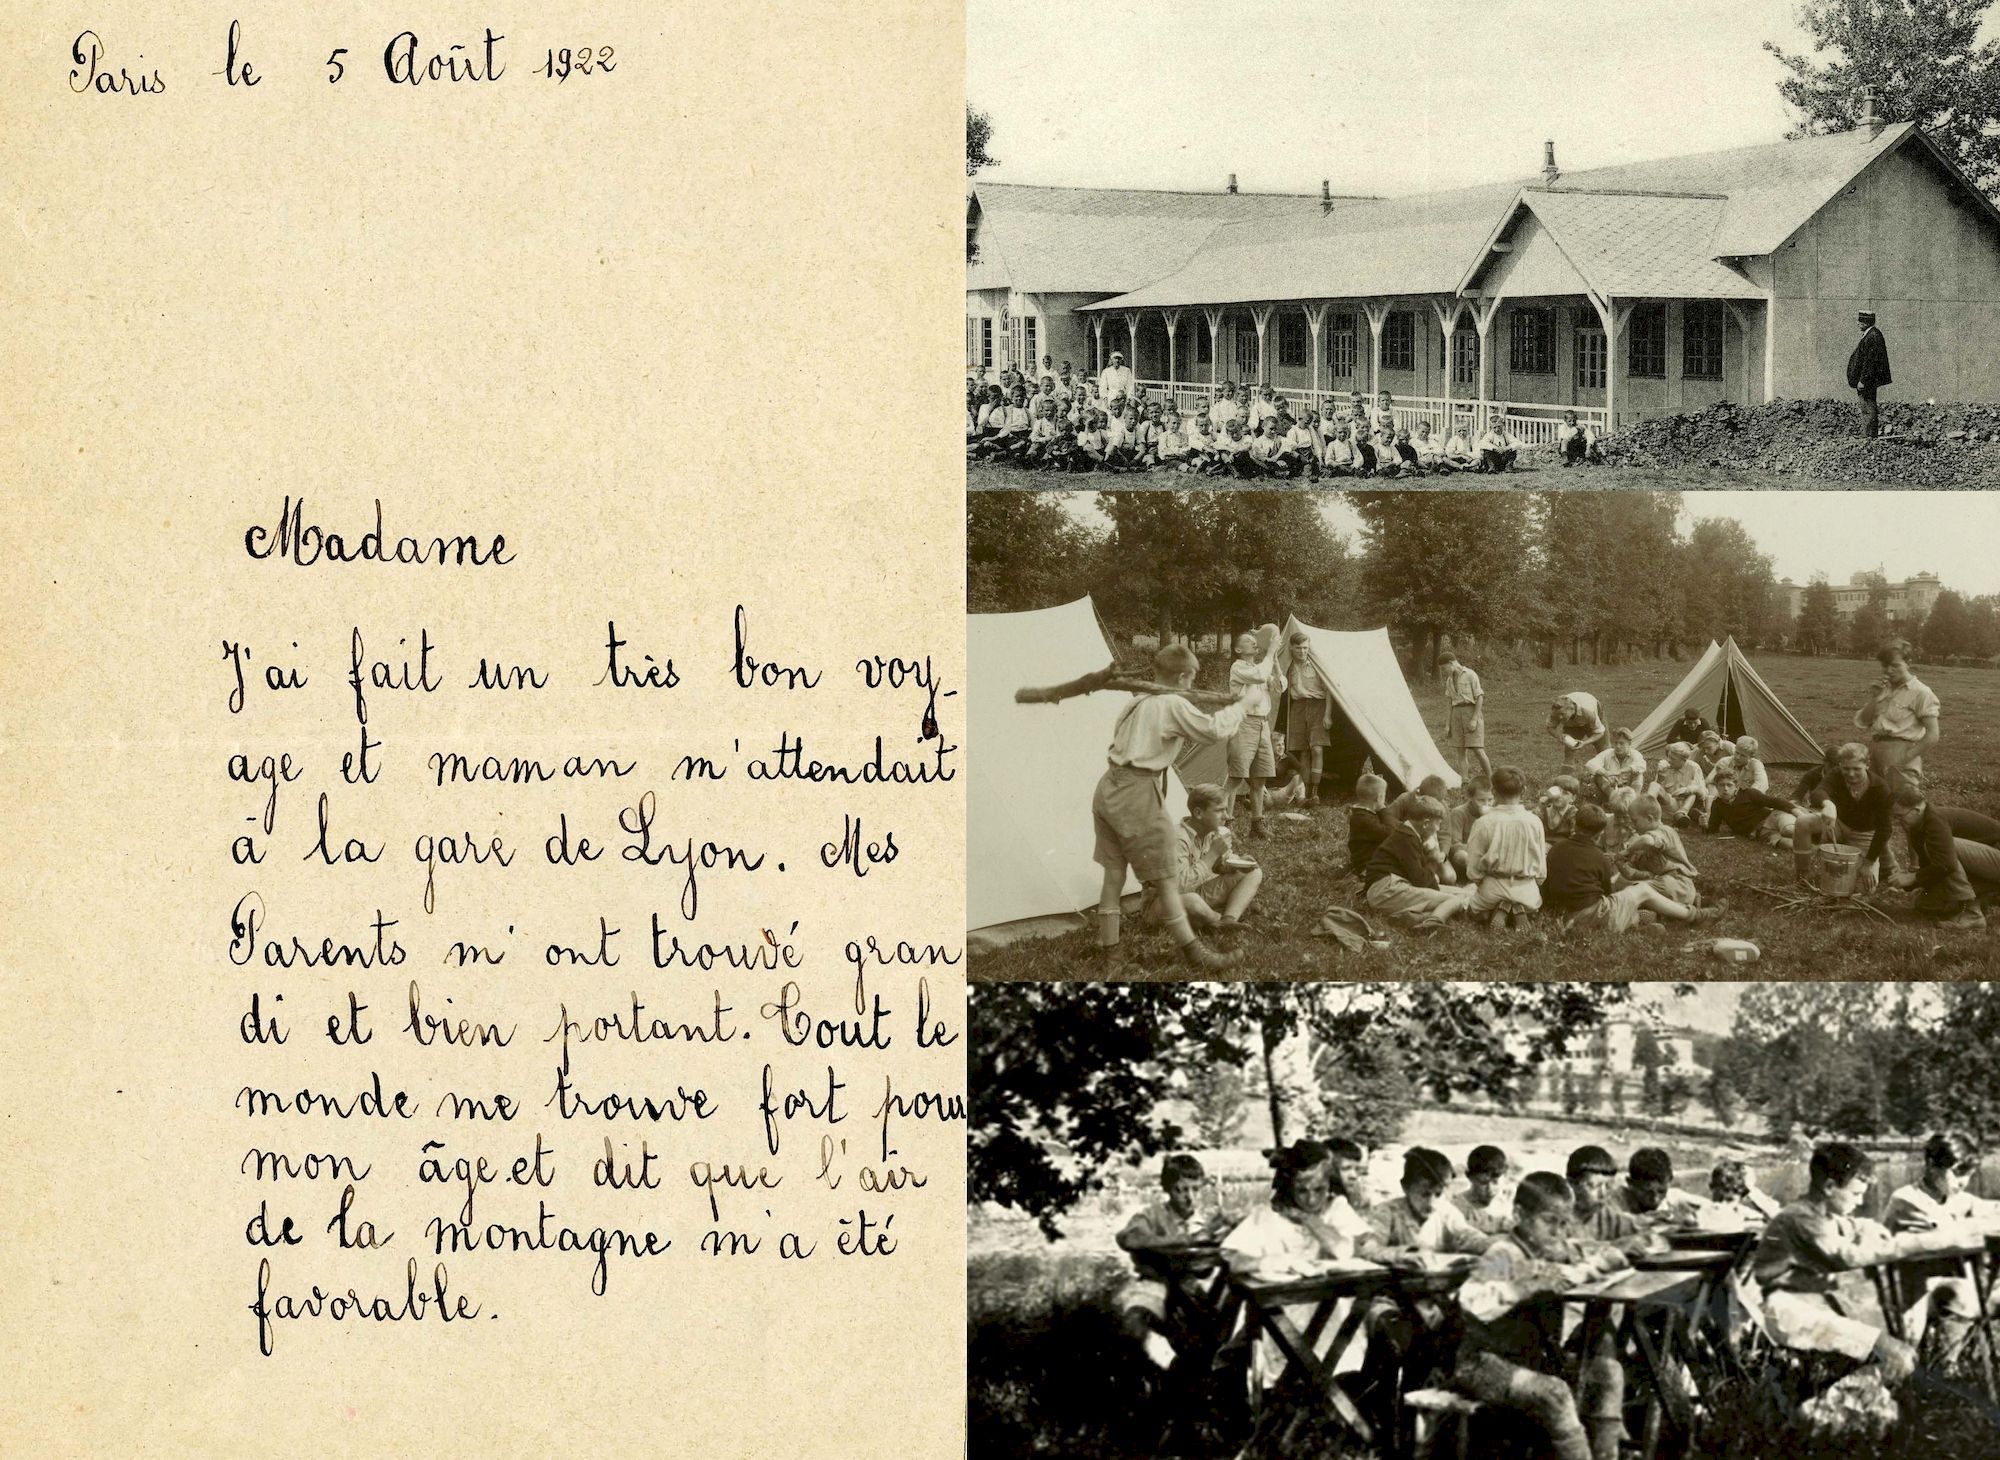 Paris le 5 Août 1922
Madame
J'ai fait un très bon voy-
age et maman m'attendait
à la gare de Lyon. Mes
Parents m'ont trouvé gran
di et bien portant. Tout le
monde me trouve fort pour
mon âge.et dit que l'air
de la montagne m'a été
favorable.